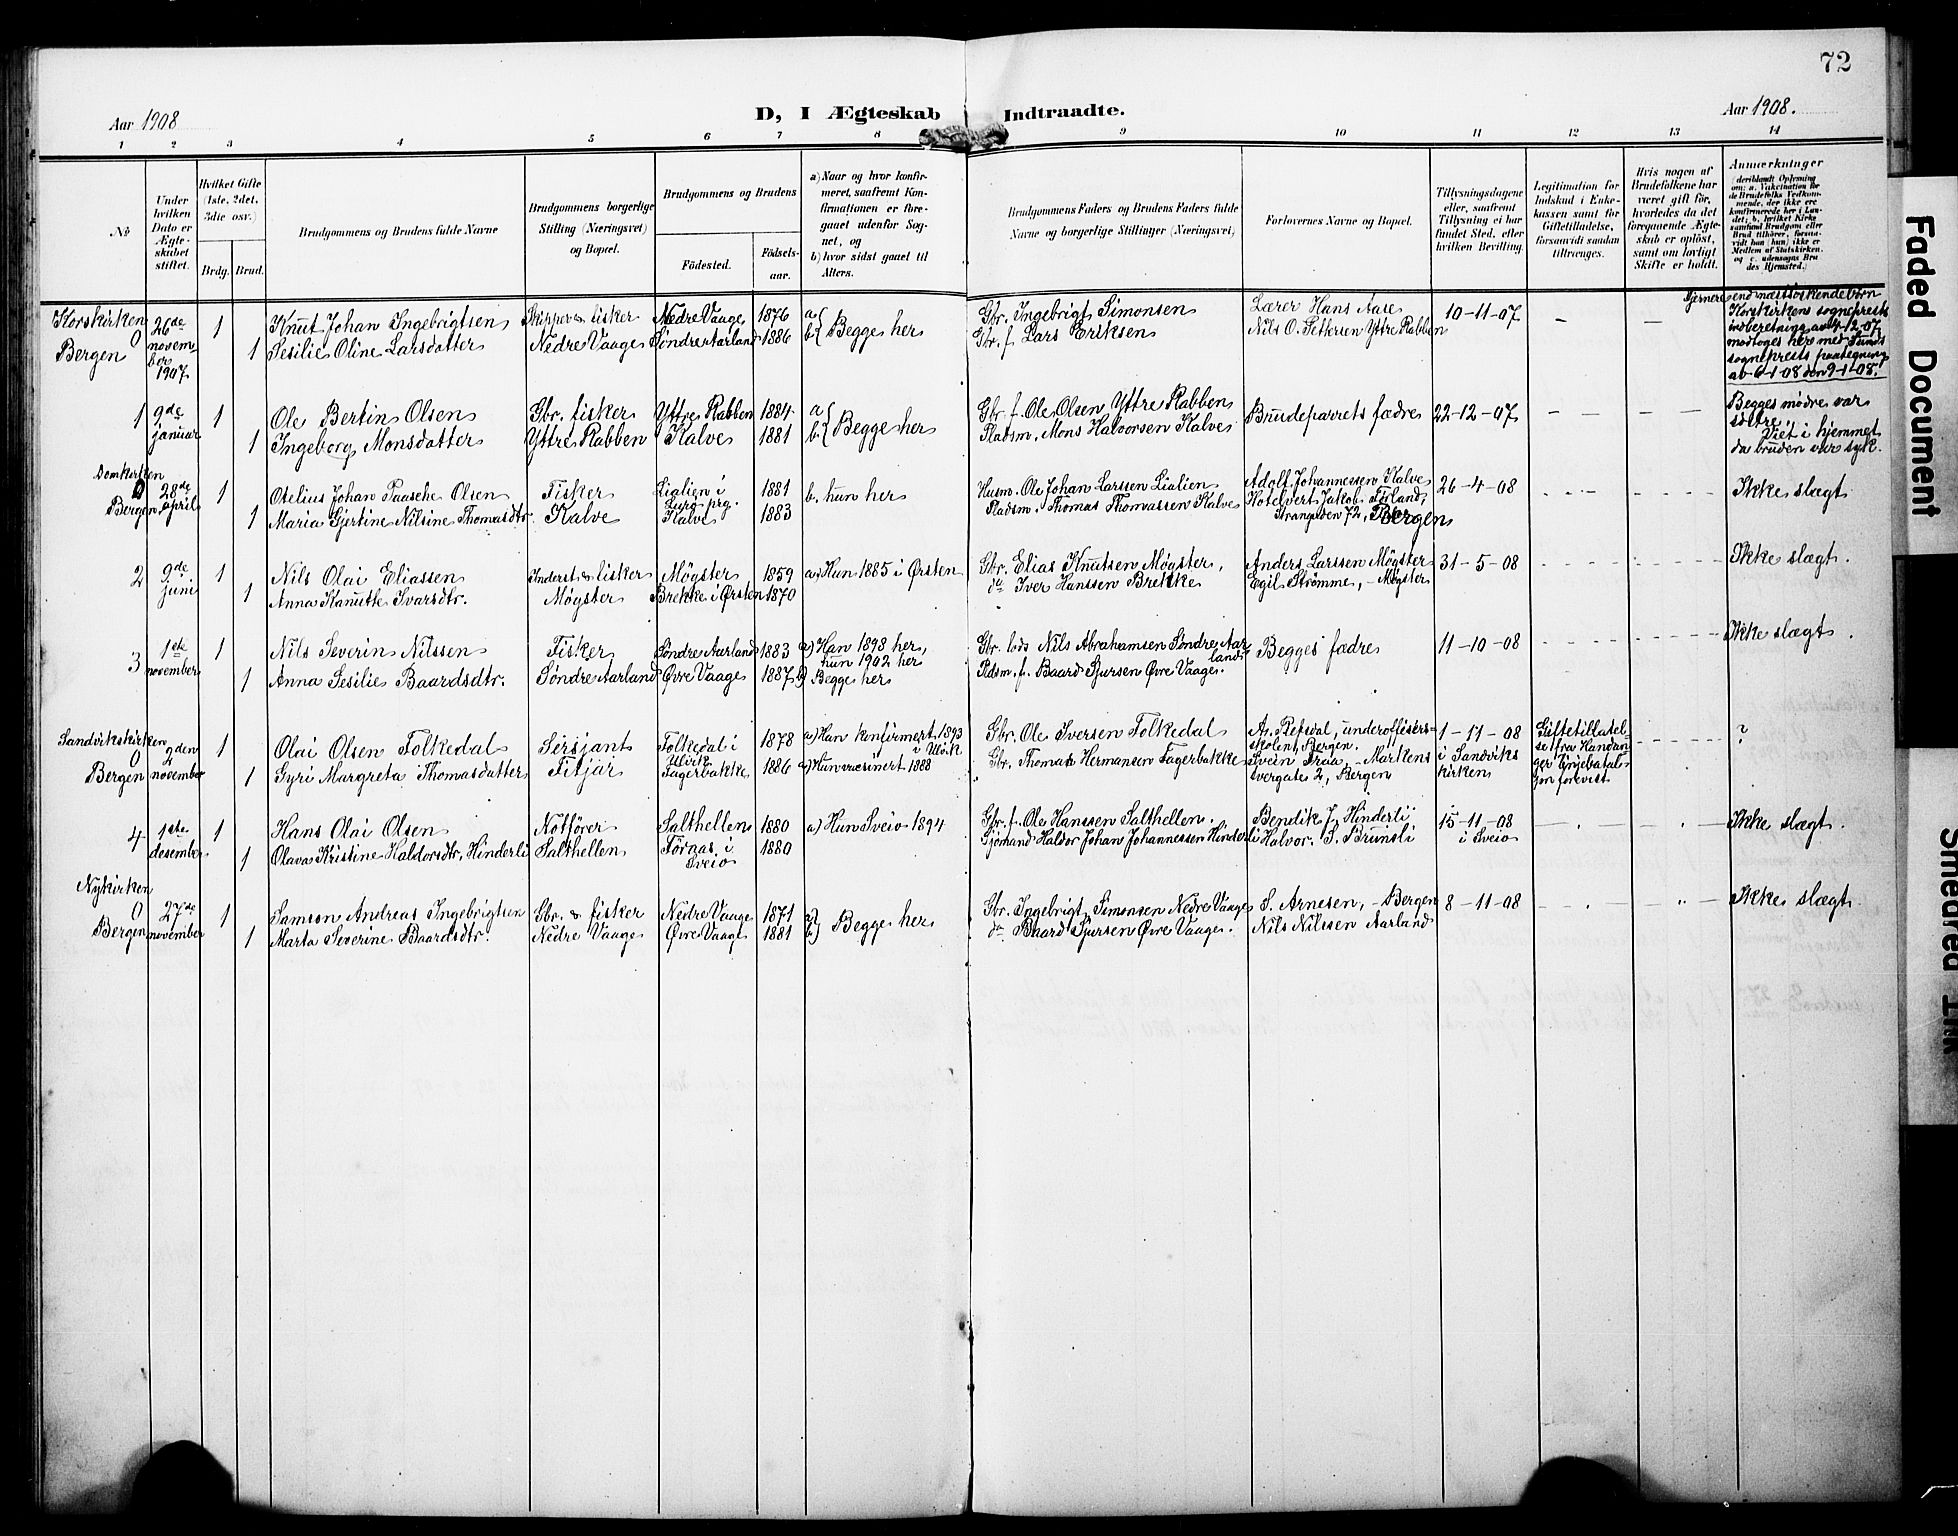 72
Aar 1908
D, I Ægteskab Indtraadte.
Aar 1908.
1 2 3 4 5 6 7 8 9 10 11 12 13 14
No
Under hvilken Dato er Ægteskabet stiftet.
Hvilket Gifte (1ste, 2det, 3die osv.)
Brdg. Brud.
Brudgommens og Brudens fulde Navne
Brudgommens borgerlige Stilling (Næringsvei) og Bopæl.
Brudgommens og Brudens
Fødested. Fødselsaar.
a) Naar og hvor konfirmeret, saafremt Konfirmationen er foregaaet udenfor Sognet, og
b) hvor sidst gaaet til Alters.
Brudgommens Faders og Brudens Faders fulde Navne og borgerlige Stillinger (Næringsvei)
Forlovernes Navne og Bopæl.
Tillysningsdagene eller, saafremt Tillysning ei har fundet Sted, efter hvilken Bevilling.
Legitimation for Indskud i Enkekassen samt for Giftetilladelse, forsaavidt saadan tiltrænges.
Hvis nogen af Brudefolkene har været gift før, hvorledes da det foregaaende Ægteskab er opløst, samt om lovligt Skifte er holdt.
Anmærkninger (deriblandt Oplysning om: a. Vakcination for de Brudefolks Vedkommende, der ikke ere konfirmerede her i Landet; b. hvilket Kirkesamfund Brudgom eller Brud tilhører, forsaavidt han (hun) ikke er Medlem af Statskirken, og c. udensogns Brudes Hjemsted.)
Korskirken 0 Bergen
26de november 1907
1 Knut Johan Ingebrigtsen Skipper & fisker Nedre Vaage 1876 a) b) Begge her Gbr. Ingebrigt Simonsen Lærer Hans Aase 10-11-07 - -
1 Sesilie Oline Larsdatter Nedre Vaage Søndre Aarland 1886 Gbr. f. Lars Eriksen Nils O. Petersen Yttre Rabben
Fjernere end næstsøskendebørn
Korskirkens sogneprests
indberetning av 4-12-07
modtoges her med Sunds
sogneprests paategning
av 6-1-08 den 9-1-08.
1 9de januar 1 Ole Bertin Olsen Gbr. fisker Yttre Rabben 1884 a b Begge her Gbr. f. Ole Olsen Yttre Rabben Brudeparrets fædre 22-12-07 - - - -
1 Ingeborg Monsdatter Yttre Rabben Kalve 1881 Pladsm. Mons Halvorsen Kalve
Begges mødre var
søstre.
Viet i hjemmet
da bruden var syk.
Domkirken 0 Bergen
28de april 1 Otelius Johan Paasche Olsen Fisker Lialien i 1881 b. hun her Husm. Ole Johan Larssen Lialien Adolf Johannessen Kalve 26-4-08 Ikke slægt
1 Maria Gjertine Nilsine Thomasdtr. Kalve Kalve 1883 Pladsm. Thomas Thomassen Kalve Hotelvert Jakob Førland,
Strangaden 72, Bergen
2 9de juni 1 Nils Olai Eliassen Inderst & fisker Møgster 1859 a) Hun 1885 i Ørsten Gbr. Elias Knutsen Møgster, Anders Larssen Møgster 31-5-08 Ikke slægt.
1 Anna Kanutte Ivarsdtr. Møgster Brekke i Ørsten 1870 do Iver Hanssen Brekke Egil Strømme, - Møgster
3 1ste november 1 Nils Severin Nilssen Fisker Søndre Aarland 1883 a) Han 1898 her, hun 1902 her Gbr. lods Nils Abrahamsen Søndre Aarland Begges fædre 11-10-08 Ikke slægt.
1 Anna Sesilie Baardsdtr. Søndre Aarland Øvre Vaage 1887 b) Begge her Pldsm. f. Baard Sjursen Øvre Vaage.
Sandvikskirken 0 Bergen
9den november 1 Olai Olsen Folkedal Sersjant Folkedal i Ulvik 1878 a) Han konfirmert 1893 i Ulvik Gbr. Ole Iversen Folkedal As. Refsdal, underofficersskolen, Bergen. 1-11-08 i Sandvikskirken
1 Gyri Margreta Thomasdatter Fitjar Fagerbakke 1886 a) Hun vacsinert 1888 Gbr. Thomas Hermansen Fagerbakke Svein Traa, - Markens
vergate 2, Bergen
Giftetilladelse fra Hardanger
forevist
?
4 1ste desember 1 Hans Olai Olsen Notfører Salthellen 1880 a) Hun Sveio 1894 Gbr. f. Ole Hanssen Salthellen. Bendik J. Hinderli 15-11-08 i Sveio Ikke slægt.
1 Olava Kristine Haldorsdtr. Hinderli Salthellen Føraas i Sveio 1880 Sjømand Haldor Johan Johannessen Hinderli Halvor. S. Brunsli
Nykirken 0 Bergen
27de november 1 Samson Andreas Ingebrigtsen Gbr. & fisker Nedre Vaage 1871 a) b) Begge her Gbr. Ingebrigt Simonsen Nedre Vaage S. Arnesen, - Bergen 8-11-08 Ikke slægt
1 Marta Severine Baardsdtr. Nedre Vaage Øvre Vaage 1881 do Baard Sjursen Øvre Vaage. Nils Nilssen Aarland
Faded Document
Smeared Ink